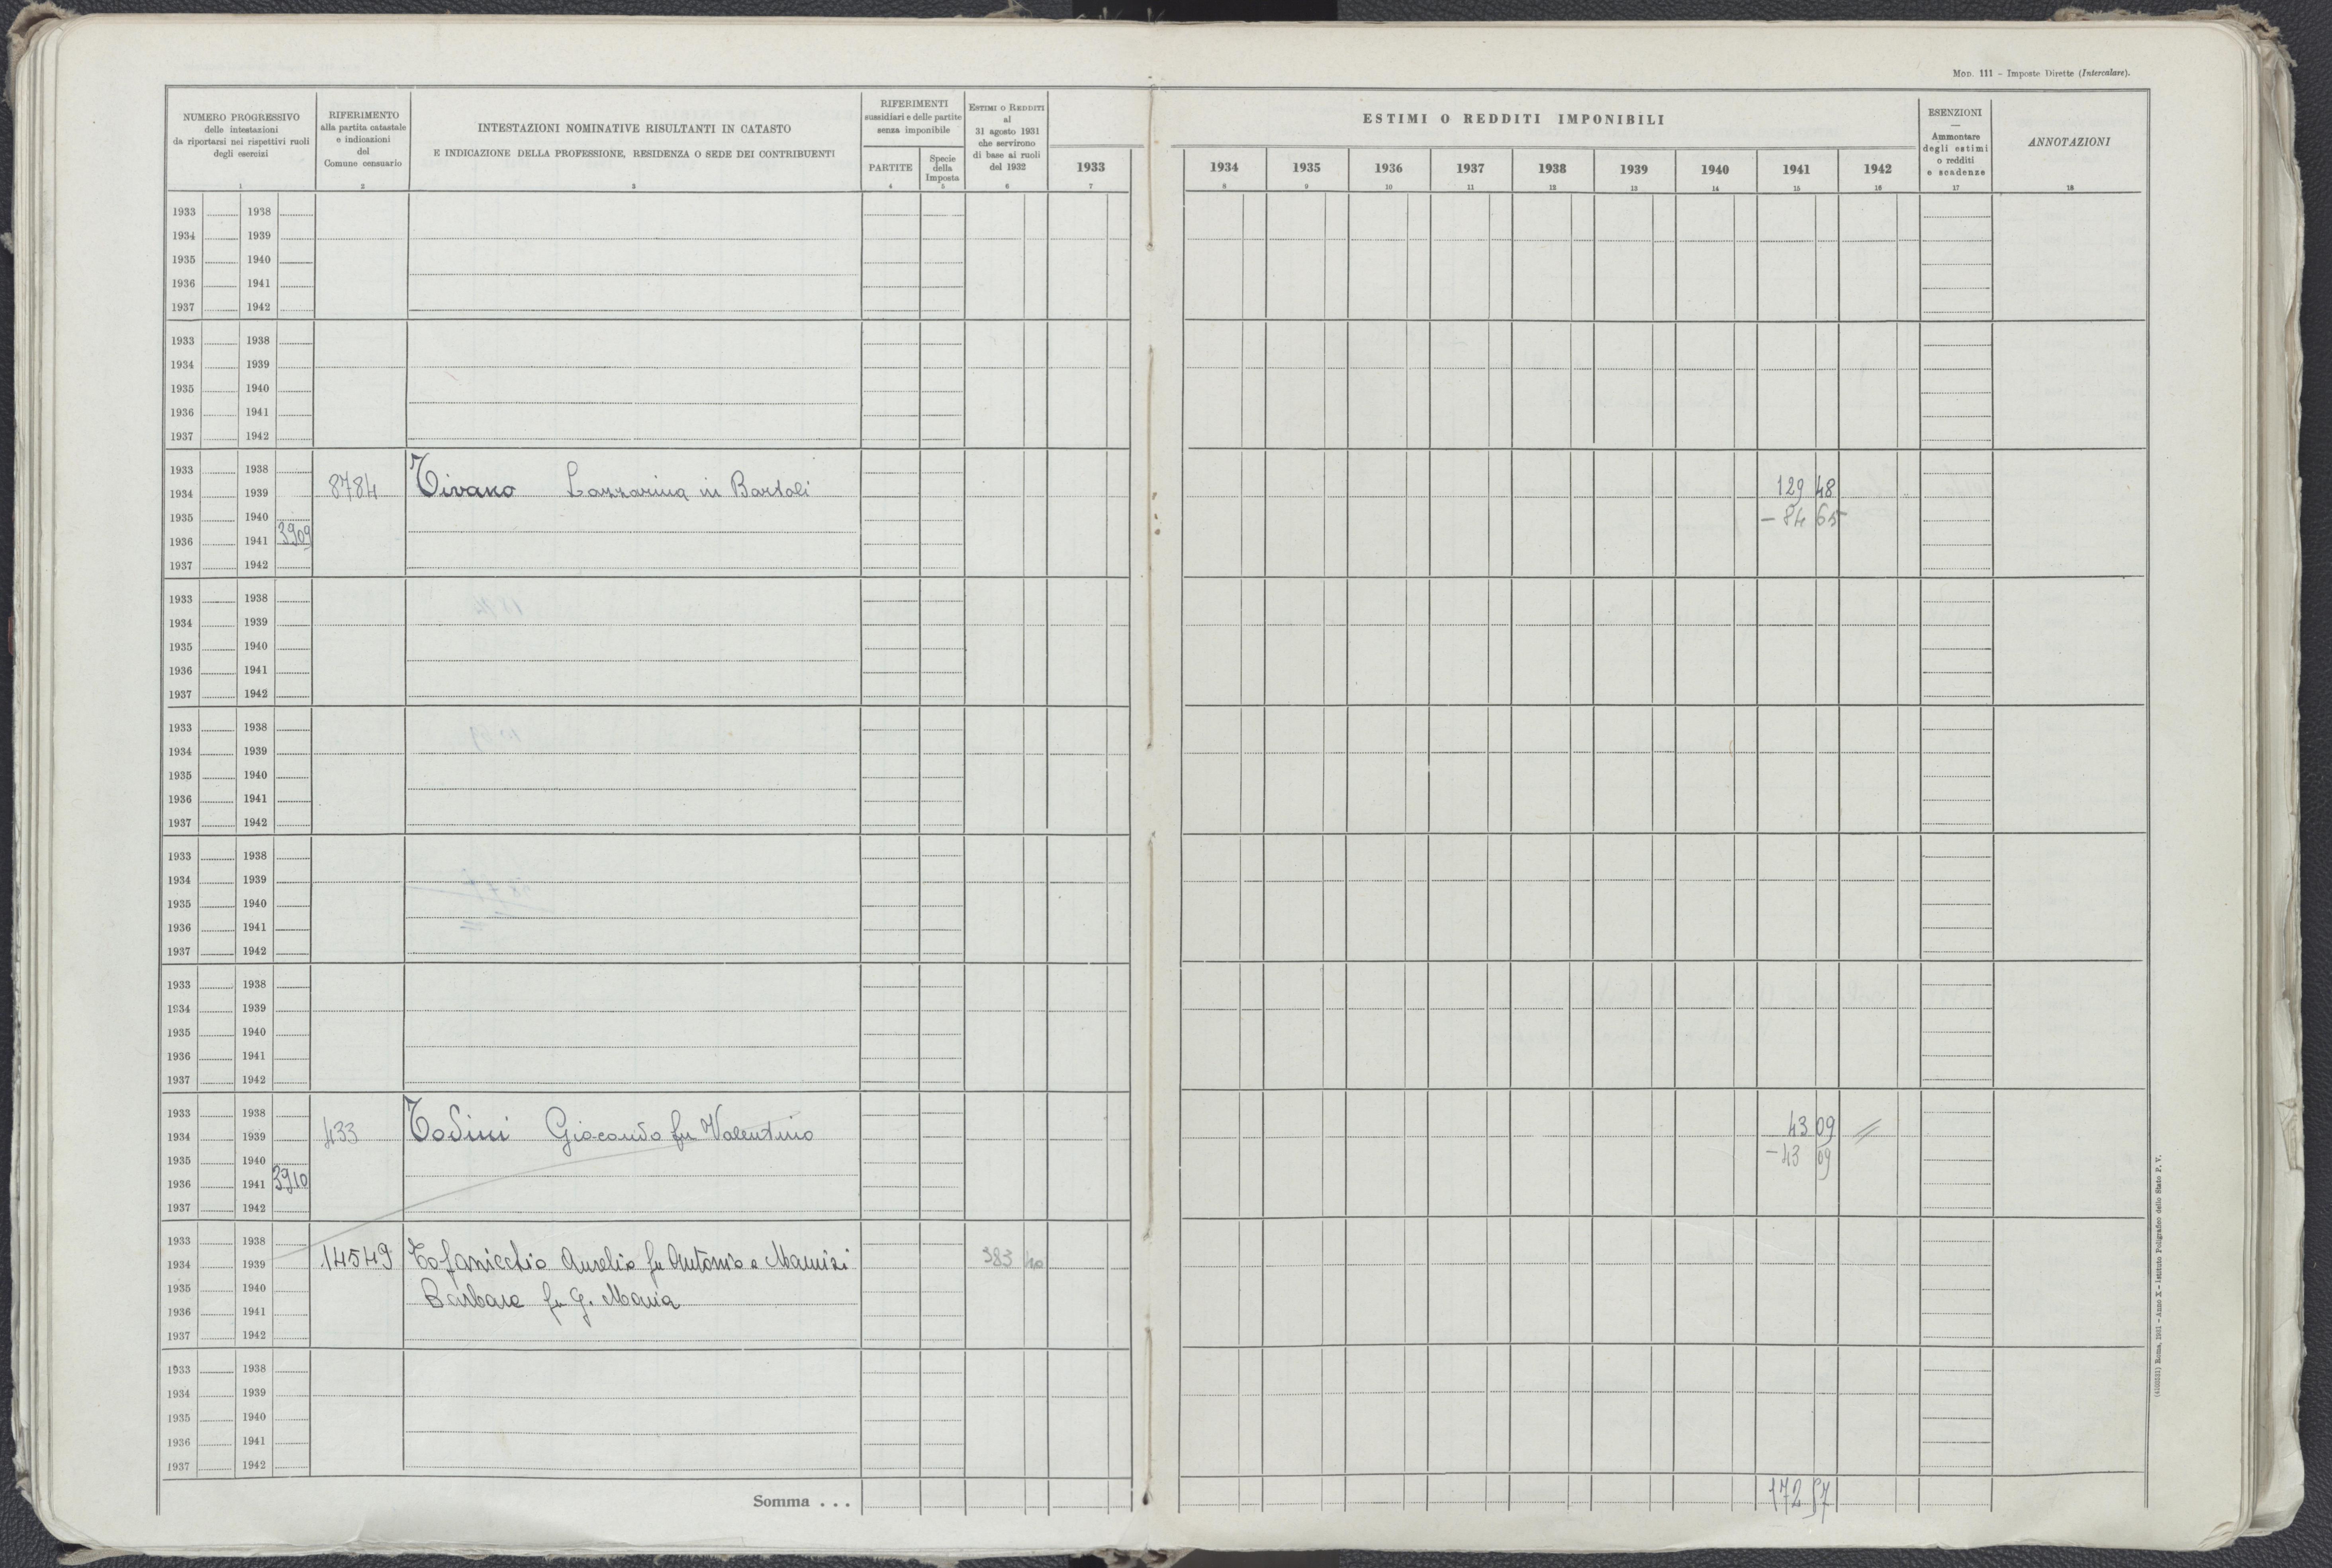 Mod. 111 - Imposte Dirette (Intercalare).
NUMERO PROGRESSIVO
delle intestazioni
da riportarsi nei rispettivi ruoli
degli esercizi
1
RIFERIMENTO
alla partita catastale
e indicazioni
del
Comune censuario
2
INTESTAZIONI NOMINATIVE RISULTANTI IN CATASTO
E INDICAZIONE DELLA PROFESSIONE, RESIDENZA O SEDE DEI CONTRIBUENTI
3
RIFERIMENTI
sussidiari e delle partite
senza imponibile
PARTITE
4
Specie
della
Imposta
5
ESTIMI O REDDITI
al
31 agosto 1931
che servirono
di base ai ruoli
del 1932
6
1933
7
ESTIMI O REDDITI IMPONIBILI
1934 1935 1936 1937 1938 1939 1940 1941 1942
8 9 10 11 12 13 14 15 16
ESENZIONI
Ammontare
degli estimi
o redditi
e scadenze
17
ANNOTAZIONI
18
1933 1938
1934 1939
1935 1940
1936 1941
1937 1942
1933 1938
1934 1939
1935 1940
1936 1941
1937 1942
1933 1938
1934 1939 8784 Tivano Lazzarina in Bartoli 129 48
1935 1940 - 84 65
1936 1941 3909
1937 1942
1933 1938
1934 1939
1935 1940
1936 1941
1937 1942
1933 1938
1934 1939
1935 1940
1936 1941
1937 1942
1933 1938
1934 1939
1935 1940
1936 1941
1937 1942
1933 1938
1934 1939
1935 1940
1936 1941
1937 1942
1933 1938
1934 1939 433 Todini Giocondo fu Valentino 43 09 //
1935 1940 - 43 09
1936 1941 3910
1937 1942
1933 1938
1934 1939 14549 Tofanicchio Aurelio fu Antonio e 383 40
1935 1940 Barbara fu G. Maria
1936 1941
1937 1942
1933 1938
1934 1939
1935 1940
1936 1941
1937 1942
Somma . . . 172 57
Roma, 1931 - Anno X - Istituto Poligrafico dello Stato P. V.